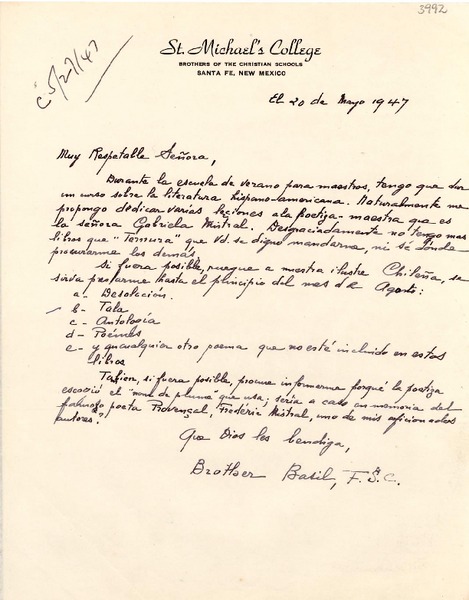 3992
c 5/27/47
St. Michael's College
BROTHERS OF THE CHRISTIAN SCHOOLS
SANTA FE, NEW MEXICO
El 20 de Mayo 1947
Muy Respetable Señora,
Durante la escuela de verano para maestros, tengo que dar
un curso sobre la literatura hispano-americana. Naturalmente me
propongo dedicar varias lecciones a la poetiza-maestra que es
la señora Gabriela Mistral. Desgraciadamente no tengo mas
libros que "Ternura" que Vd. se digno mandarme, ni sé donde
procurarme los demás.
Si fuera posible, ruegue a nuestra ilustre Chileña, se
sirva prestarme hasta el principio del mes de Agosto:
a- Desolación.
b- Tala
c- Antología
d- Poémes
e- y qualquier otro poema que no esté incluido en estos
libros
Tabien, si fuera posible, procure informarme porqué la poetiza
escogió el "nom de plume que usa; sería a caso en memoria del
famoso poeta Provençal, Frédéric Mistral, uno de mis aficionados
autores?
Que Dios les bendiga,
Brother Basil, F.S.C.